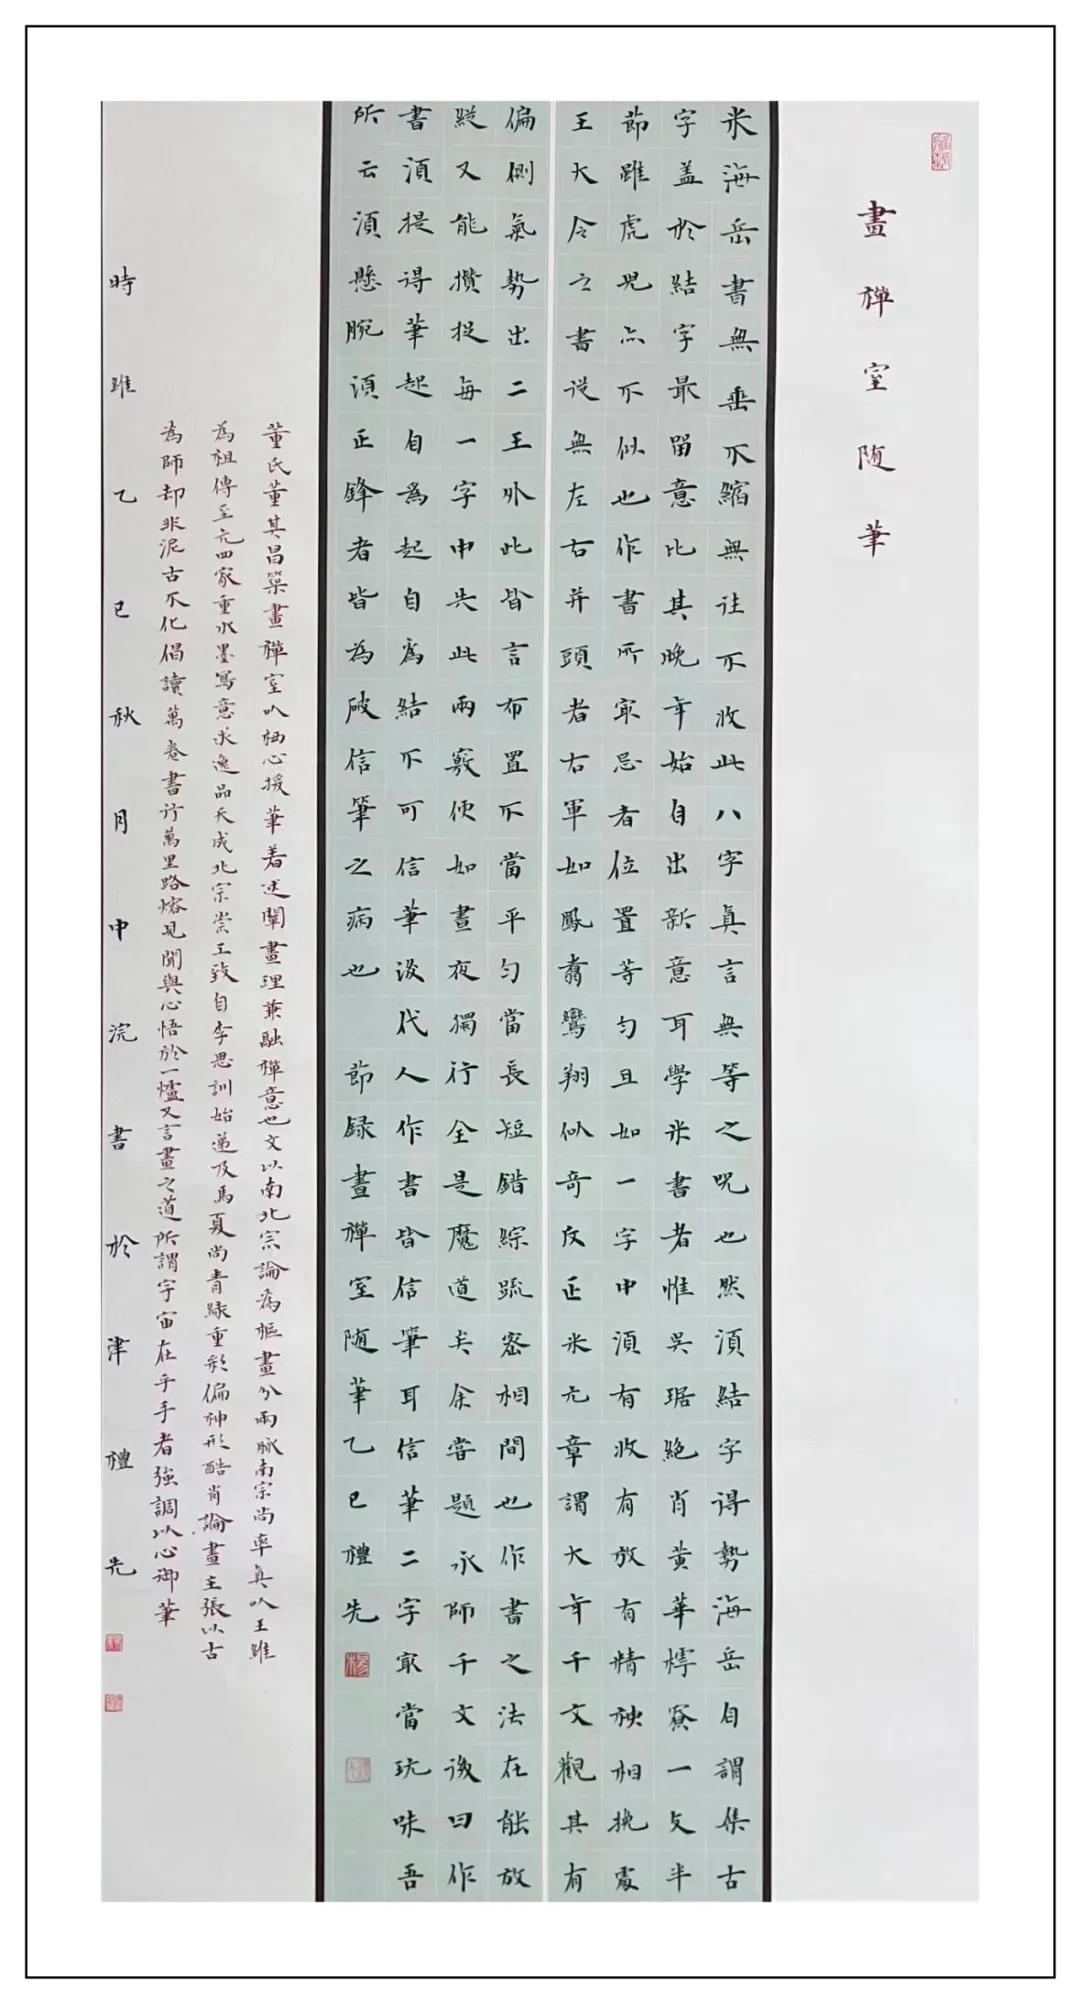 畫禪室随筆
米海岳書無垂不縮無往不收此八字真言無等之咒也然須結字得勢海岳自謂集古
字蓋於結字最留意比其晚年始自出新意耳學米書者惟吳琚絕肖黃華樗寮一支半
節雖虎兒亦不似也作書所最忌者位置等勻且如一字中須有收有放有精神相挽處
王大令之書從無左右并頭者右軍如鳳翥鸞翔似奇反正米元章謂大年千文觀其有
偏側氣勢出二王外此皆言布置不當平勻當長短錯綜疏密相間也作書之法在能放
縱又能攢捉每一字中失此兩竅便如晝夜獨行全是魔道矣余嘗題永師千文後曰作
書須提得筆起自為起自為結不可信筆後代人作書皆信筆耳信筆二字最當玩味吾
所云須懸腕須正鋒者皆為破信筆之病也 節録畫禪室随筆乙巳禮先
董氏董其昌築畫禪室以栖心援筆着述闡畫理兼融禪意也文以南北宗論為樞畫分兩脈南宗尚率真以王維
為祖傳至元四家重水墨寫意求逸品天成北宗崇工致自李思訓始遞及馬夏尚青綠重彩偏神形酷肖論畫主張以古
為師却非泥古不化倡讀萬卷書行萬里路熔見聞與心悟於一爐又言畫之道所謂宇宙在乎手者強調以心御筆
時雖乙巳秋月申浣書於津禮先